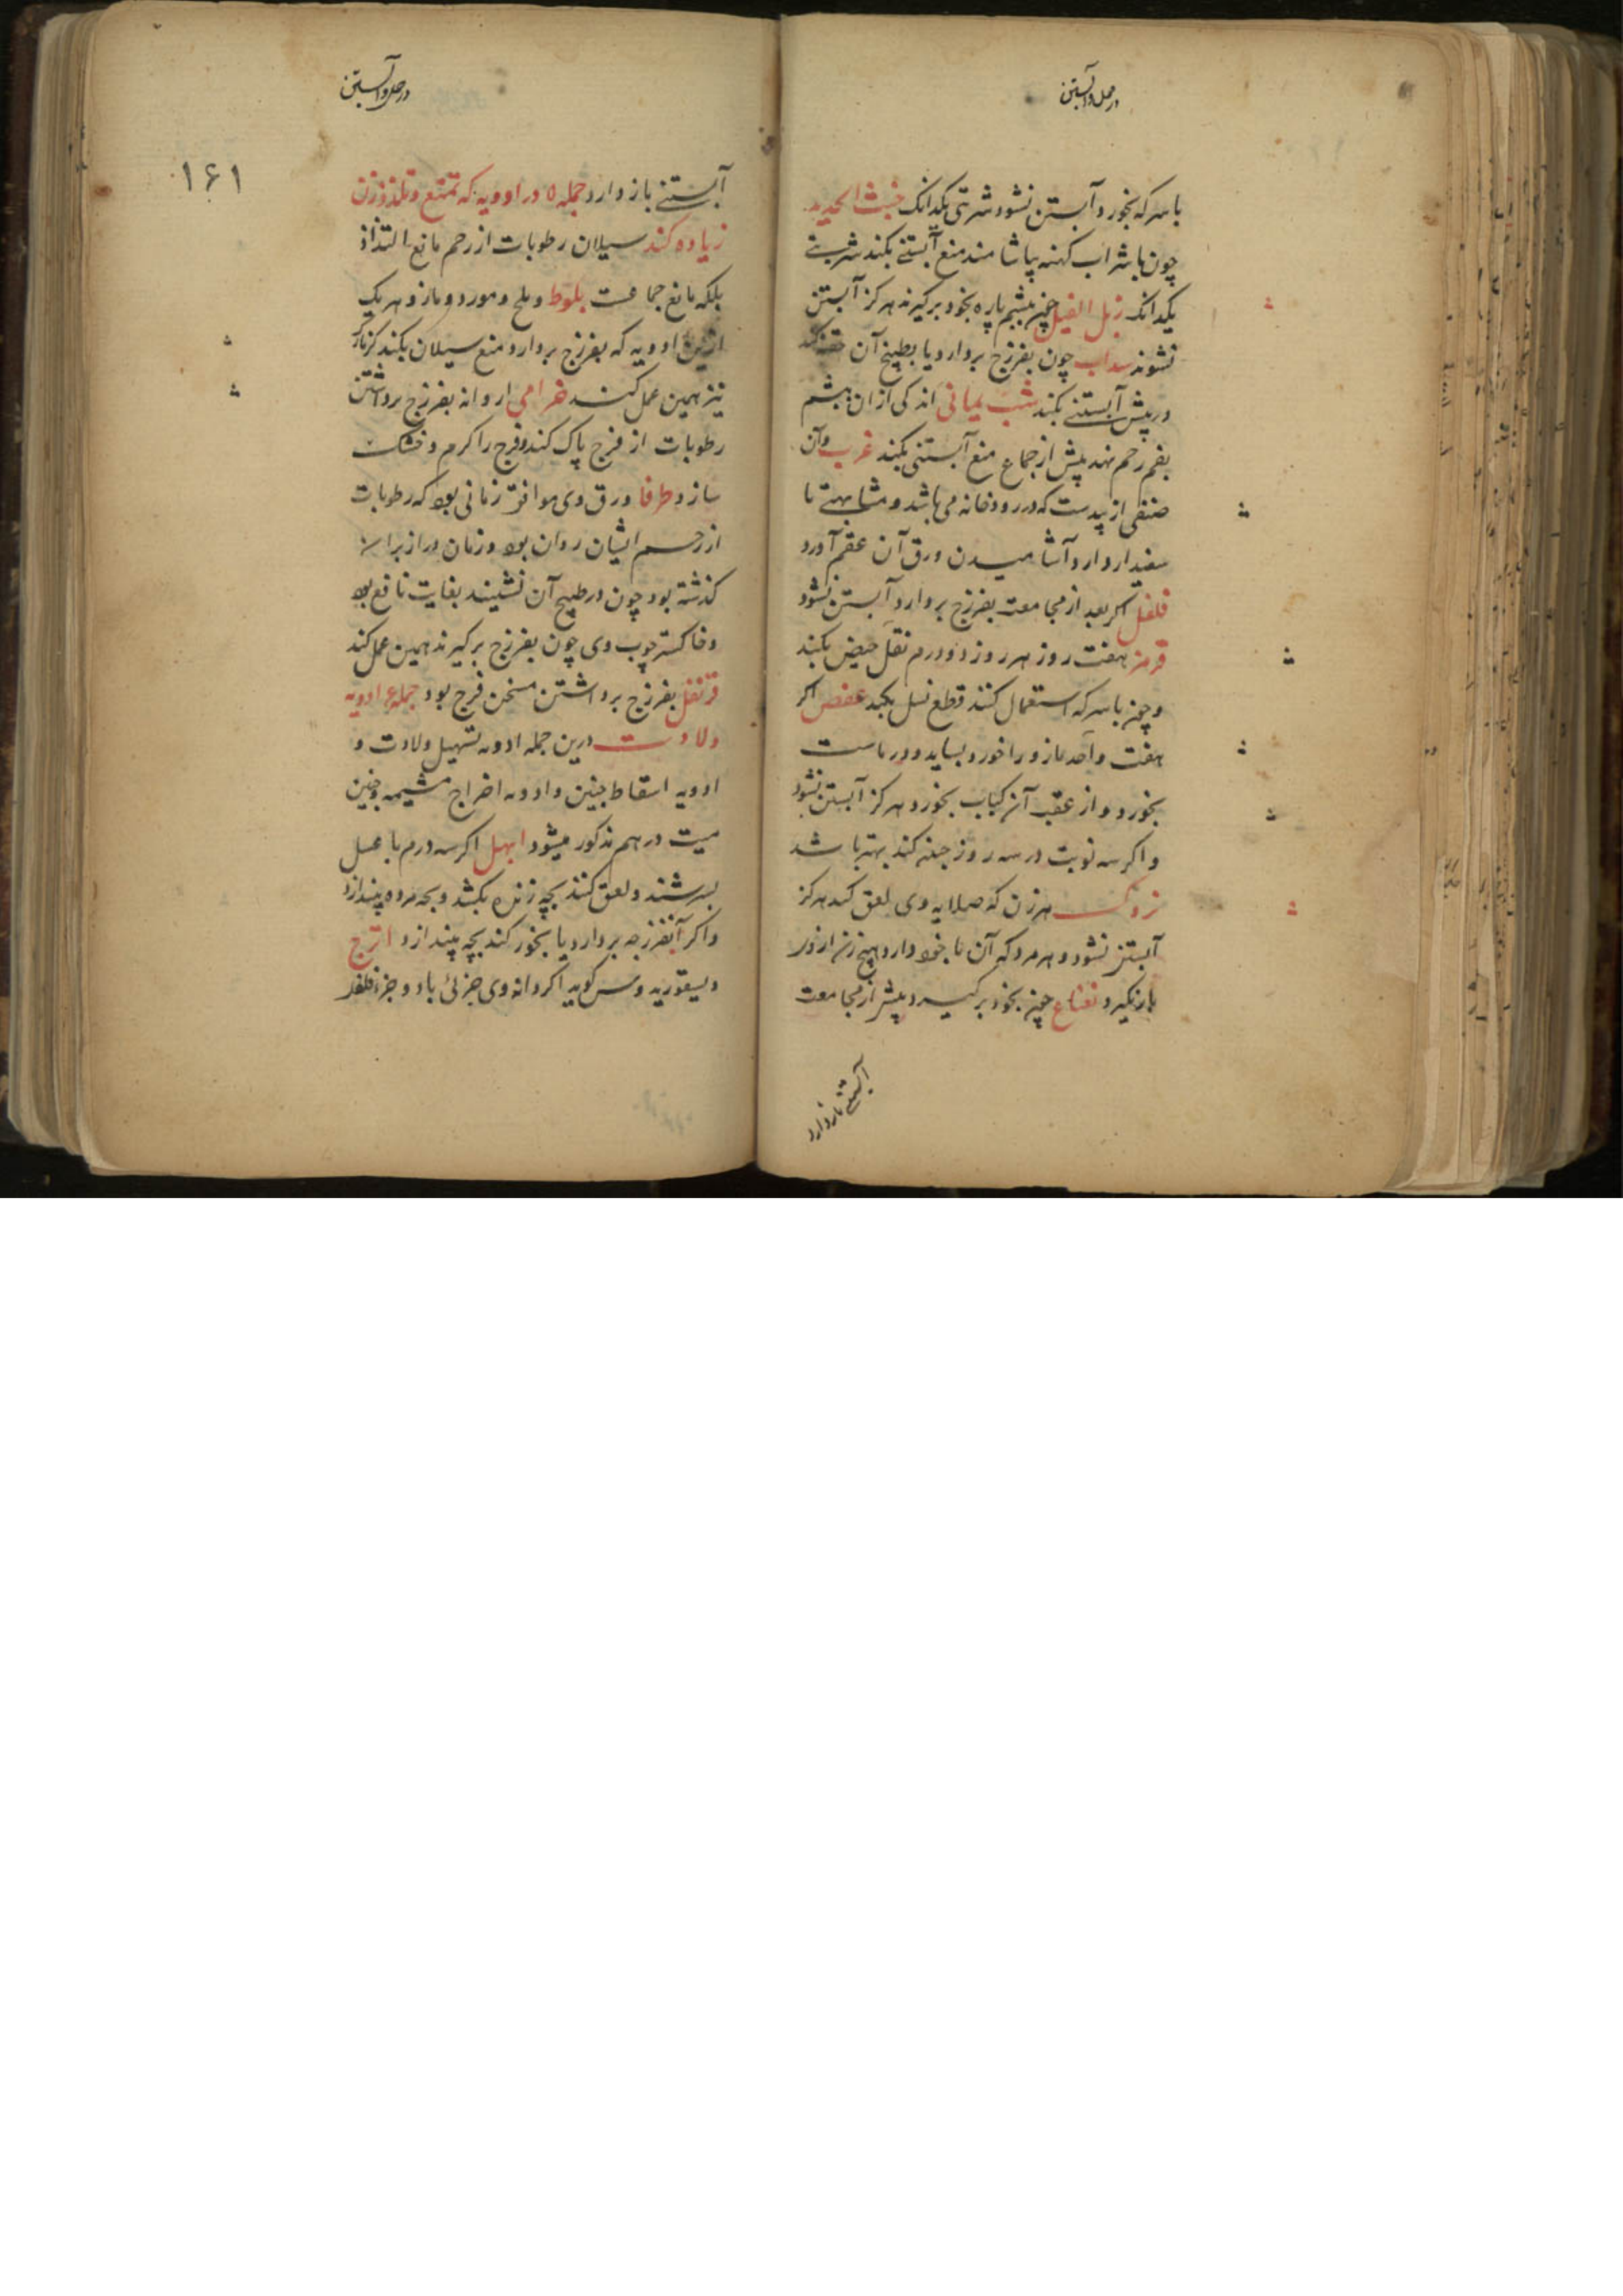 در حمل و آبستن
با سرکه بخورد آبستن نشود شربتی یکدانک خبث الحدید
چون با شراب کهنه بیاشامند منع آبستنے بکند شربتے
یکدانک زبل الفیل چون بپشم پاره بخود برگیرند هرکز آبستن
نشوند سداب چون بفرزج بردارد یا بطبیخ آن حقنه کند
در پیش آبستنے بکند شب یمانی اندکی از ان پیشم
بفم رحم نهد پیش از جماع منع آبستنی بکند غرب وآن
صنفی از بیدست که در رودخانه می باشد و مشابهتے با
سفیدار دارد آشامیدن ورق آن عقم آورد
فلفل اکر بعد از مجامعت بفرزج بردارد آبستن نشود
قرمز هفت روز هر روز دو درم نقل حیض بکند
و چون با سرکه استعمال کنند قطع نسل بکند عفص اکر
هفت واحد مازو را خورد بساید و در ماست
بخورد و از عقب آن کباب بخورد هرکز آبستن نشود
و اکر سه نوبت در سه روز چنین کند بهتر باشد
هر زن که صلایه وی لعق کند هرکز
آبستن نشود و هر مرد که آن با خود دارد هیچ زن از وی
بار نکیرد نعناع چون بخود برگیرد پیش از مجامعت
آبستنے باز دارد
در حمل و آبستن
۱۶۱
آبستنے باز دارد جمله ۵ در ادویه که تمتع و تلذذ زن
زیاده کند سیلان رطوبات از رحم مانع التذاذ
بلکه مانع جماعست بلوط و ملح و مورد و مازو هر یک
ازین ادویه که بفرزج بردارد منع سیلان بکند کزمازک
نیز همین عمل کند دانه بفرزج برداشتن
رطوبات از فرج پاک کند و فرج را کرم و خشک
سازد طرفا ورق وی موافق زنانی بود که رطوبات
از رحم ایشان روان بود و زمان دراز بران
کذشته بود چون در طبیخ آن نشینند بغایت نافع بود
و خاکستر چوب وی چون بفرزج برگیرند همین عمل کند
قرنفل بفرزج برداشتن مسخن فرج بود جمله ۶ ادویه
ولادت درین جمله ادویه تسهیل ولادت و
ادویه اسقاط جنین و ادویه اخراج مشیمه و جنین
میت در هم مذکور میشود ابهل اکر سه درم با عسل
بسرشند و لعق کنند بچه زنده بکشد و بچه مرده بیندازد
و اکر آنفرزجه بردارد یا بخور کند بچه بیندازد اترج
دیسقوریدوس کوید اکر دانه وی جزئی با دو جزء فلفل